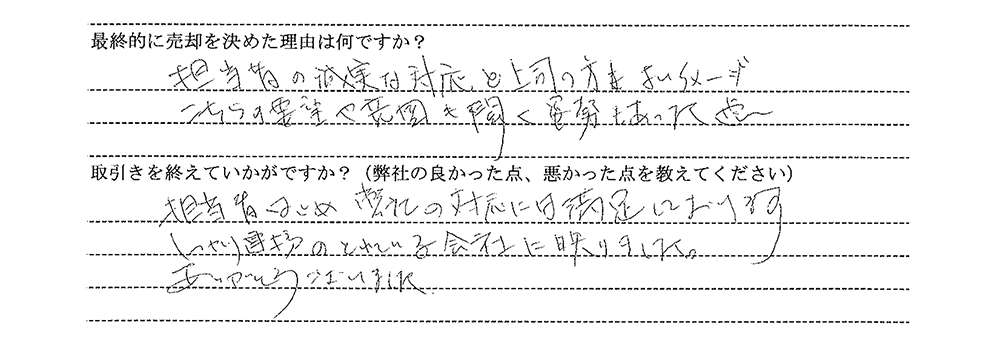 最終的に売却を決めた理由は何ですか？
担当者の誠実な対応と上司の方もよいイメージ
こちらの要望や意図を聞く姿勢もあった
取引きを終えていかがですか？（弊社の良かった点、悪かった点を教えてください）
担当者はじめ 御社の対応には満足しております
しっかり連携のとれている会社に映りました。
ありがとうございました